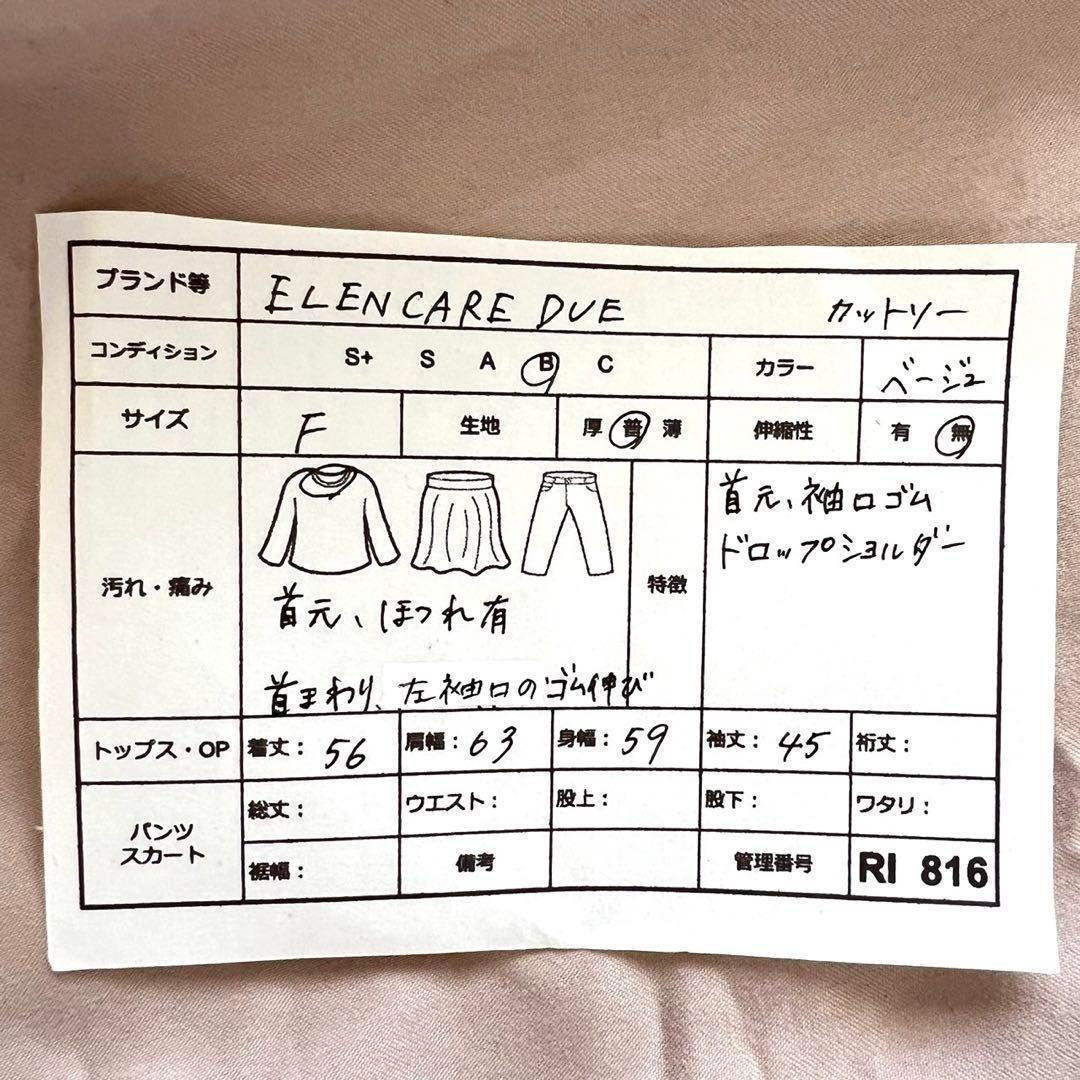 ブランド等 ELENCARE DUE カットソー
コンディション S+ S A B C カラー ベージュ
サイズ F 生地 厚 普 薄 伸縮性 有 無
汚れ・痛み 首元、ほつれ有
首まわり、左袖口のゴム伸び
特徴 首元、袖口ゴム
ドロップショルダー
トップス・OP 着丈: 56 肩幅: 63 身幅: 59 袖丈: 45 裄丈:
パンツ
スカート
総丈: ウエスト: 股上: 股下: ワタリ:
裾幅: 備考 管理番号 RI 816